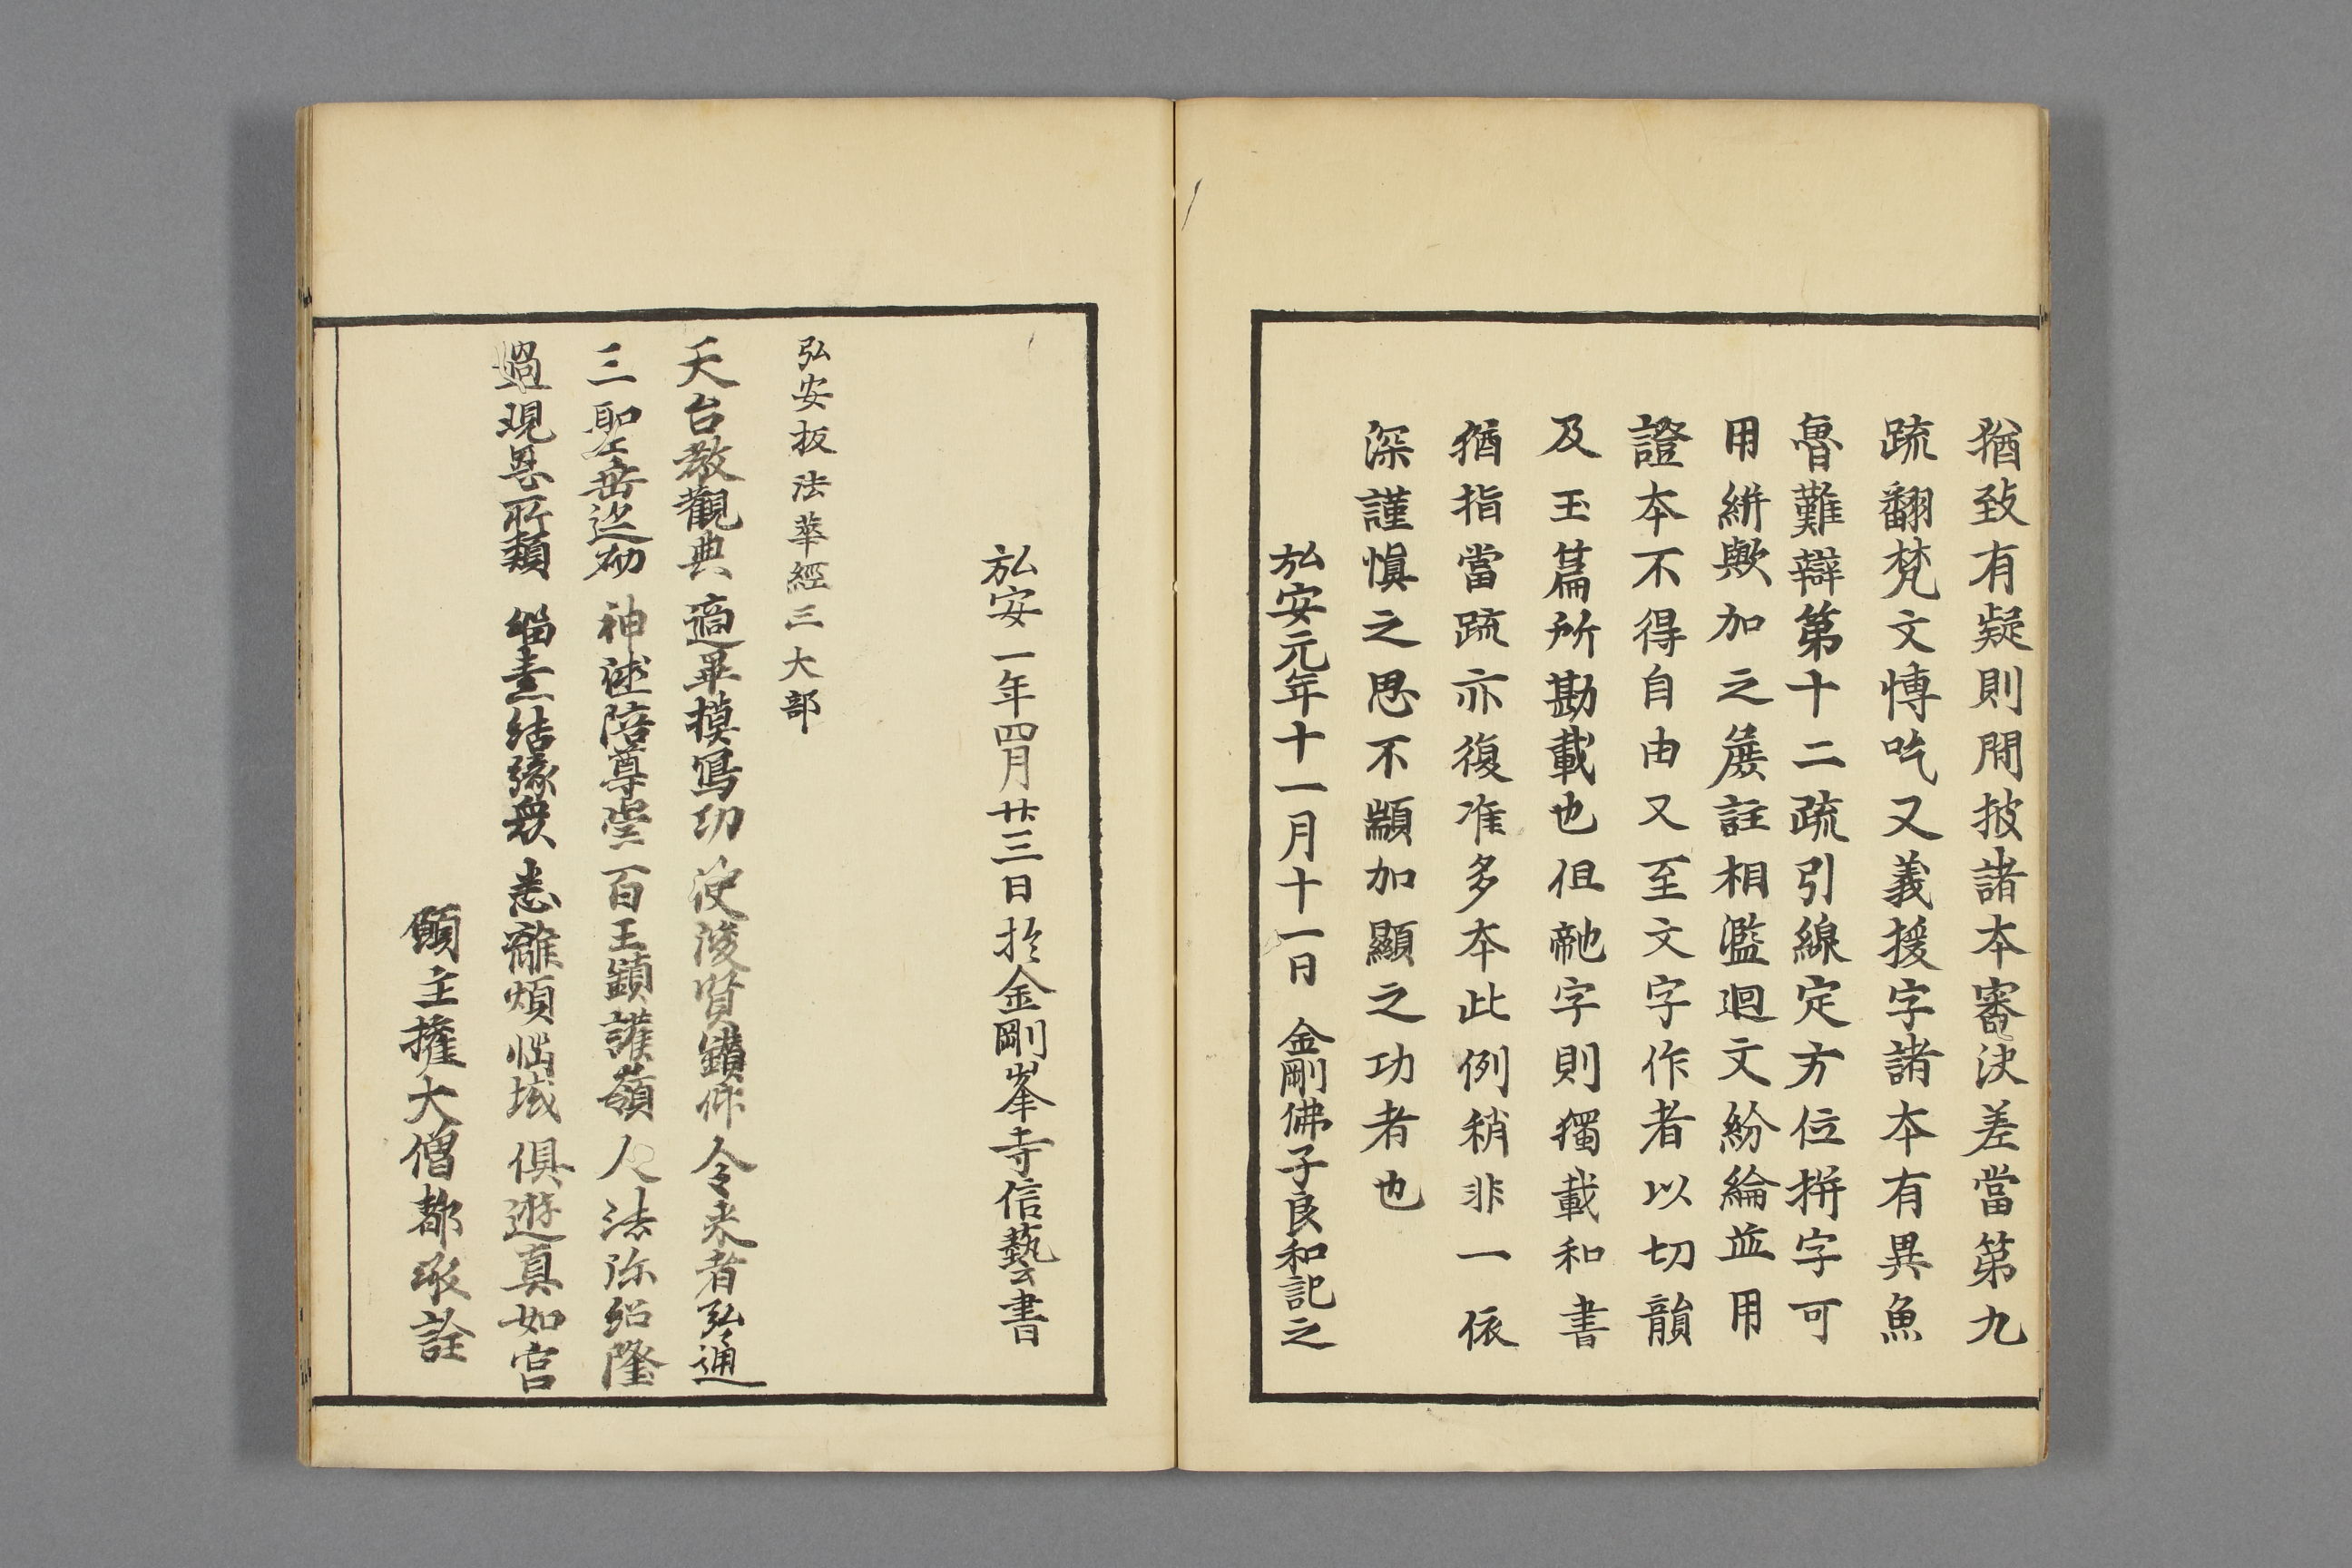 猶致有疑則閒披諸本審決差當第九
疏翻梵文博吃又義援字諸本有異魚
魯難辯第十二疏引線定方位拼字可
用絣歟加之癈註相濫迴文紛綸並用
證本不得自由又至文字作者以切韻
及玉篇所勘載也但虵字則獨載和書
猶指當疏亦復准多本此例稍非一依
深謹慎之思不顧加顯之功者也
弘安元年十一月十一日 金剛佛子良和記之
弘安一年四月廿三日於金剛峯寺信藝書
弘安板法華經三大部
天台教觀典 適畢摸寫功 使後賢鑽仰 令来者弘通
三聖岳迹砌 神述陪尊崇 百王鎮護嶺 人法弥紹隆
過現恩所類 緇素結縁衆 悉離煩惱域 俱遊真如宮
願主権大僧都承詮